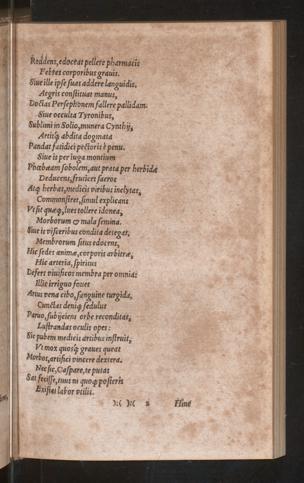 Reddens, edoctas pellere pharmacis
Febres corporibus graueis.
Siue ille ipse suas addere languidis,
Aegris constituat manus,
Doctas Persephonem fallere pallidam.
Siue occulta Tyronibus,
Sublimi in Solio, munera Cynthij,
Artisq́; abdita dogmata
Pandat fatidici pectoris è penu.
Siue is per iuga montium
Phœbæam sobolem, aut prata per herbida
Deducens, frutices sacros
Atq́; herbas, medicis viribus inclytas,
Commonstret, simul explicans
Vt sit quæq́;, lues tollere idonea,
Morborum & mala semina.
Siue is visceribus condita detegat,
Membrorum situs edocens,
Hic sedes animæ, corporis arbitræ,
Hic arteria, spiritus
Defert viuificos membra per omnia:
Illic irriguo fouet
Artus vena cibo, sanguine turgida.
Cunctas deniq́; sedulus
Paruo, subijciens orbe reconditas,
Lustrandas oculis opes:
Sic pubem medicis artibus instruit,
Vt mox quosq́; graues queat
Morbos, artifici vincere dextera.
Nec sic, Caspare, te putas
Sat fecisse, tuus ni quoq́; posteris
Existat labor vtilis.
)( )( 2 Hinc